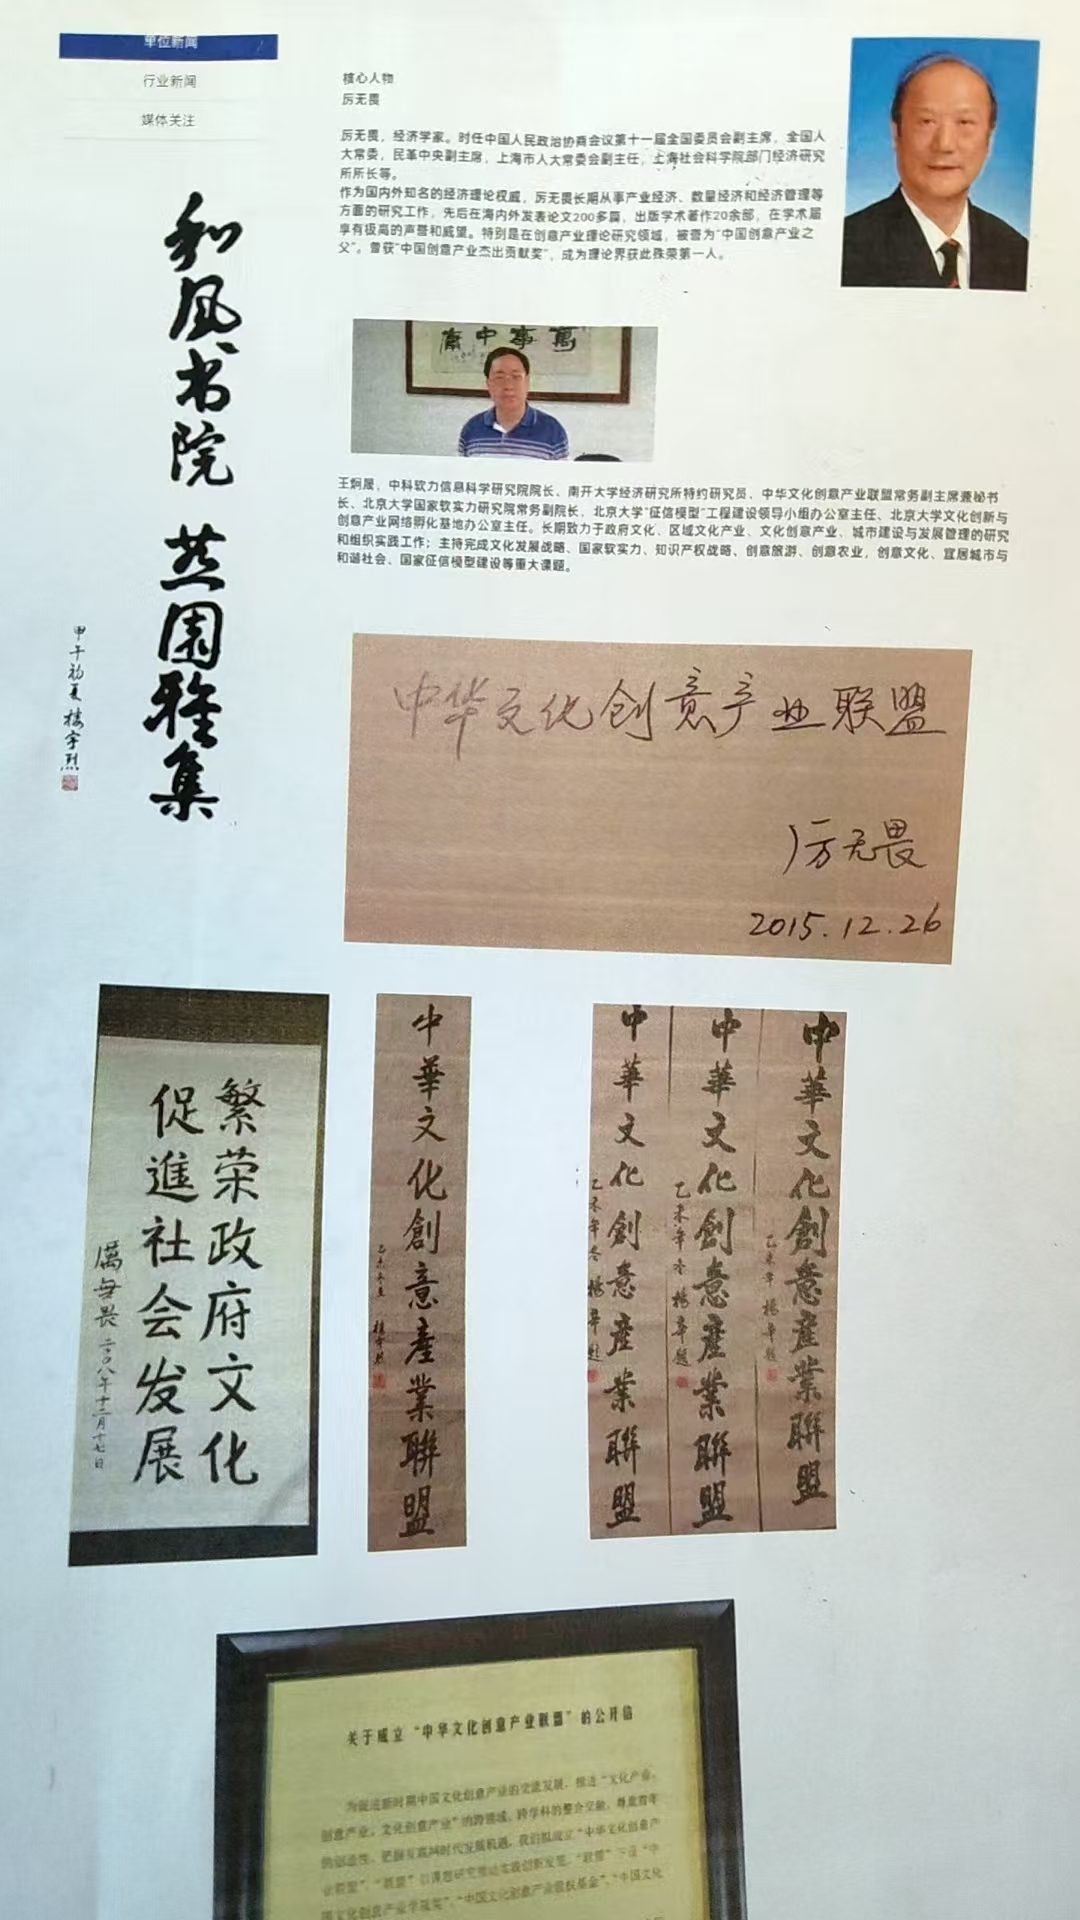 单位新闻
行业新闻
媒体关注
核心人物
厉无畏
厉无畏，经济学家。时任中国人民政治协商会议第十一届全国委员会副主席，全国人
大常委，民革中央副主席，上海市人大常委会副主任，上海社会科学院部门经济研究
所所长等。
作为国内外知名的经济理论权威，厉无畏长期从事产业经济、数量经济和经济管理等
方面的研究工作，先后在海内外发表论文200多篇，出版学术著作20余部，在学术届
享有极高的声誉和威望。特别是在创意产业理论研究领域，被誉为“中国创意产业之
父”。曾获“中国创意产业杰出贡献奖”，成为理论界获此殊荣第一人。
和风书院 燕园雅集
甲午初夏 楼宇烈
萬事中
王炯晟，中科软力信息科学研究院院长、南开大学经济研究所特约研究员、中华文化创意产业联盟常务副主席兼秘书
长、北京大学国家软实力研究院常务副院长，北京大学“征信模型”工程建设领导小组办公室主任、北京大学文化创新与
创意产业网络孵化基地办公室主任。长期致力于政府文化、区域文化产业、文化创意产业、城市建设与发展管理的研究
和组织实践工作；主持完成文化发展战略、国家软实力、知识产权战略、创意旅游、创意农业，创意文化、宜居城市与
和谐社会、国家征信模型建设等重大课题。
中华文化创意产业联盟
厉无畏
2015.12.26
繁荣政府文化
促進社会发展
厲無畏 二〇〇八年十二月十七日
中華文化創意產業聯盟
中華文化創意產業聯盟
乙未年冬 楊辛題
中華文化創意產業聯盟
乙未年冬 楊辛題
中華文化創意產業聯盟
乙未年 楊辛題
关于成立“中华文化创意产业联盟”的公开信
为促进新时期中国文化创意产业的交流发展，推进“文化产业，
创意产业，文化创意产业”的跨领域、跨学科的整合交融，尊重青年
的创造性，把握互联网时代发展机遇，我们拟成立“中华文化创意产
业联盟”，“联盟”以课题研究推动实践创新发范，“联盟”下设“中
国文化创意产业学院奖”、“中国文化创意产业股权基金”、“中国文化